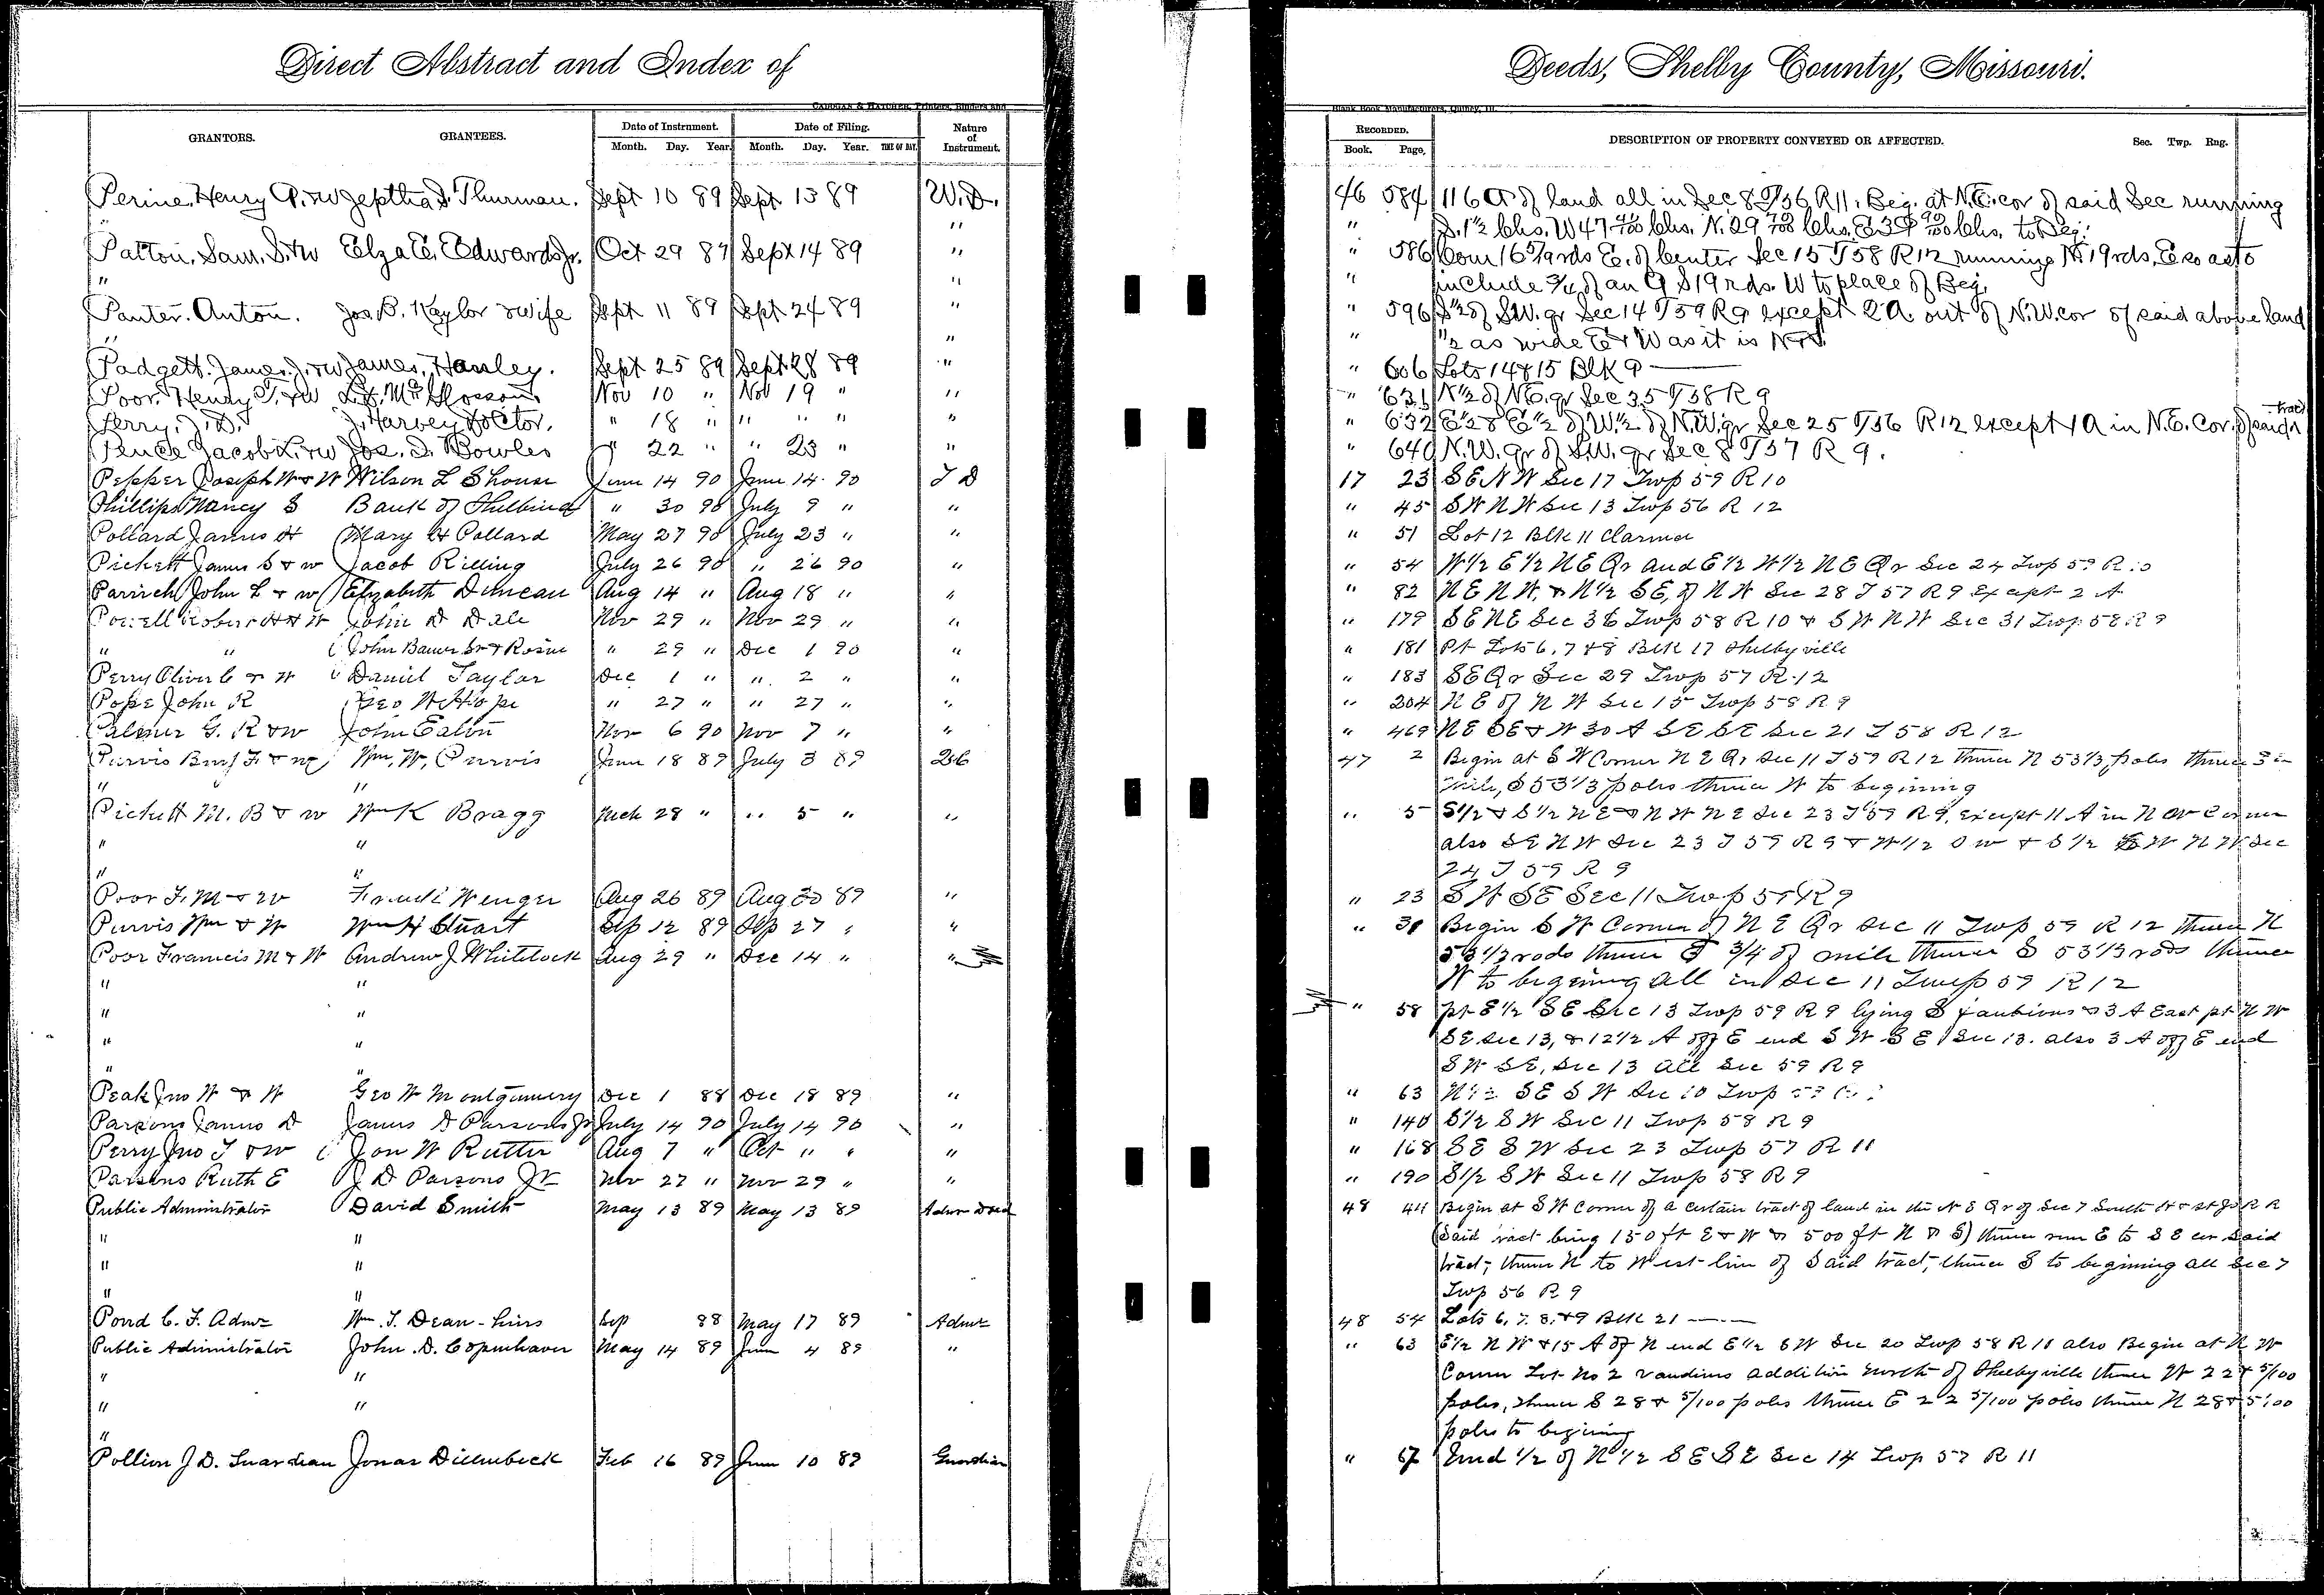 Direct Abstract and Index of
Deeds, Shelby County, Missouri.
Printers, Binders and
Blank Book Manufacturers, Quincy, Ill.
GRANTORS. GRANTEES. Date of Instrument. Month. Day. Year. Date of Filing. Month. Day. Year. TIME OF DAY. Nature of Instrument.
RECORDED. Book. Page. DESCRIPTION OF PROPERTY CONVEYED OR AFFECTED. Sec. Twp. Rng.
Perine, Henry &W Jeptha Thurman. Sept 10 89 Sept 13 89 W.D. 46 584 116 A of land all in Sec 8 T56 R11. Beg. at N.E. cor of said Sec running
" " to Beg.
Patton, Sam. S. &W Elza E. Edwards Jr. Oct 29 87 Sept 14 89 " " 586 Com 16 rds E. of Center Sec 15 T58 R12 running N 19 rds, E so as to
" " " include 3/4 of an A S 19 rds. W to place of Beg.
Panter. Anton. Jos. B. Kaylor & wife Sept 11 89 Sept 24 89 " " 596 S½ of S.W. qr Sec 14 T59 R9 except 2 A. out of N.W. cor of said above land
" " " ½ as wide E & W as it is N & S.
Padgett. James. J. &W James. Hanley. Sept 25 89 Sept 28 89 " " 606 Lots 14 & 15 Blk 9
Poor, Henry T. &W Nov 10 " Nov 19 " " " 631 N½ of N.E. qr Sec 35 T58 R9
Perry, J. D. J. Harvey Doctor. " 18 " " " " " " 632 E½ of W½ of N.W. qr Sec 25 T56 R12 except 1 A in N.E. Cor. of said tract
Pence Jacob &W Jos. D. Bowles " 22 " " 23 " " " 640 N.W. qr of S.W. qr Sec 8 T57 R9.
Pepper Joseph W & W Wilson L Shouse June 14 90 June 14 90 T D 17 23 S E N W Sec 17 Twp 59 R 10
Phillips Nancy S Bank of Shelbina " 30 90 July 9 " " " 45 S W N W Sec 13 Twp 56 R 12
Pollard James H Mary H Pollard May 27 90 July 23 " " " 51 Lot 12 Blk 11 Clarence
Pickett James S & w Jacob Rilling July 26 90 " 26 90 " " 54 W½ E½ N E Qr and E½ W½ N E Qr Sec 24 Twp 59 R 10
Parrich John L & w Elizabeth Duncan Aug 14 " Aug 18 " " " 82 N E N W, & N½ S E, of N W Sec 28 T 57 R 9 Except 2 A
Powell Robert H & W John D Dale Nov 29 " Nov 29 " " " 179 S E N E Sec 36 Twp 58 R 10 & S W N W Sec 31 Twp 58 R 9
" " John Bauer Sr & Rosine " 29 " Dec 1 90 " " 181 Pt Lots 6, 7 & 8 Blk 17 Shelbyville
Perry Oliver C & W Daniel Taylor Dec 1 " " 2 " " " 183 S E Qr Sec 29 Twp 57 R 12
Pope John R Geo W Hope " 27 " " 27 " " " 204 N E of N W Sec 15 Twp 58 R 9
Palmer G. R & w John Eaton Nov 6 90 Nov 7 " " " 469 N E S E & W 30 A S E S E Sec 21 T 58 R 12
Purvis Benj F. & w Wm. W. Purvis June 18 89 July 3 89 47 2 Begin at S W Corner N E Qr Sec 11 T 59 R 12 thence N 53 1/3 poles thence
" " mile, S 53 1/3 poles thence W to begining
Pickett M. B & w Wm K Bragg Mch 28 " " 5 " " " 5 S½ & S½ N E & N W N E Sec 23 T 59 R 9, except 11 A in N W Corner
" " also S E N W Sec 23 T 59 R 9 & W½ S W & S½ S W N W Sec
" " 24 T 59 R 9
Poor F. M & w Wenger Aug 26 89 Aug 30 89 " " 23 S W S E Sec 11 Twp 59 R 9
Purvis Wm & W Wm H Stuart Sep 12 89 Sep 27 " " " 31 Begin S W Corner of N E Qr Sec 11 Twp 59 R 12 thence N
Poor Francis M & W Andrew J Whitelock Aug 29 " Dec 14 " " 53 1/3 rods thence E 3/4 of mile thence S 53 1/3 rods thence
" " W to begining all in Sec 11 Twp 59 R 12
" " " 58 pt E½ S E Sec 13 Twp 59 R 9 lying S & 3 A East pt N W
" " S E Sec 13, & 12½ A off E end S W S E Sec 13. also 3 A off E end
" " S W S E, Sec 13 all Sec 59 R 9
Peak Jno W & W Geo W Montgomery Dec 1 88 Dec 18 89 " " 63 S E S W Sec 10 Twp
Parsons James D James D Parsons Jr July 14 90 July 14 90 " " 140 S½ S W Sec 11 Twp 58 R 9
Perry Jno T & W Jon W Rutter Aug 7 " Oct " " " " 168 S E S W Sec 23 Twp 57 R 11
Parsons Ruth E J D Parsons Jr Nov 27 " Nov 29 " " " 190 S½ S W Sec 11 Twp 58 R 9
Public Administrator David Smith May 13 89 May 13 89 Admr Deed 48 44 Begin at S W Corner of a certain tract of land in the N E Qr of Sec 7 South H & St Jo R R
" " (Said tract being 150 ft E & W & 500 ft N & S) thence run E to S E cor said
" " tract, thence N to West line of said tract, thence S to begining all Sec 7
" " Twp 56 R 9
Pond C. F. Admr Wm. T. Dean - heirs Sep 88 May 17 89 Admr 48 54 Lots 6, 7, 8, & 9 Blk 21
Public Administrator John. D. Copenhaver May 14 89 June 4 89 " " 63 E½ N W & 15 A off N end E½ S W Sec 20 Twp 58 R 10 also Begin at N W
" " Corner Lot No 2 Vandivers addition North of Shelbyville thence W 22 & 5/100
" " poles, thence S 28 & 5/100 poles thence E 22 5/100 poles thence N 28 & 5/100
" poles to begining
Pollion J D. Guardian Jonas Dillenbeck Feb 16 89 June 10 89 Guardian " 67 Und ½ of N½ S E S E Sec 14 Twp 57 R 11